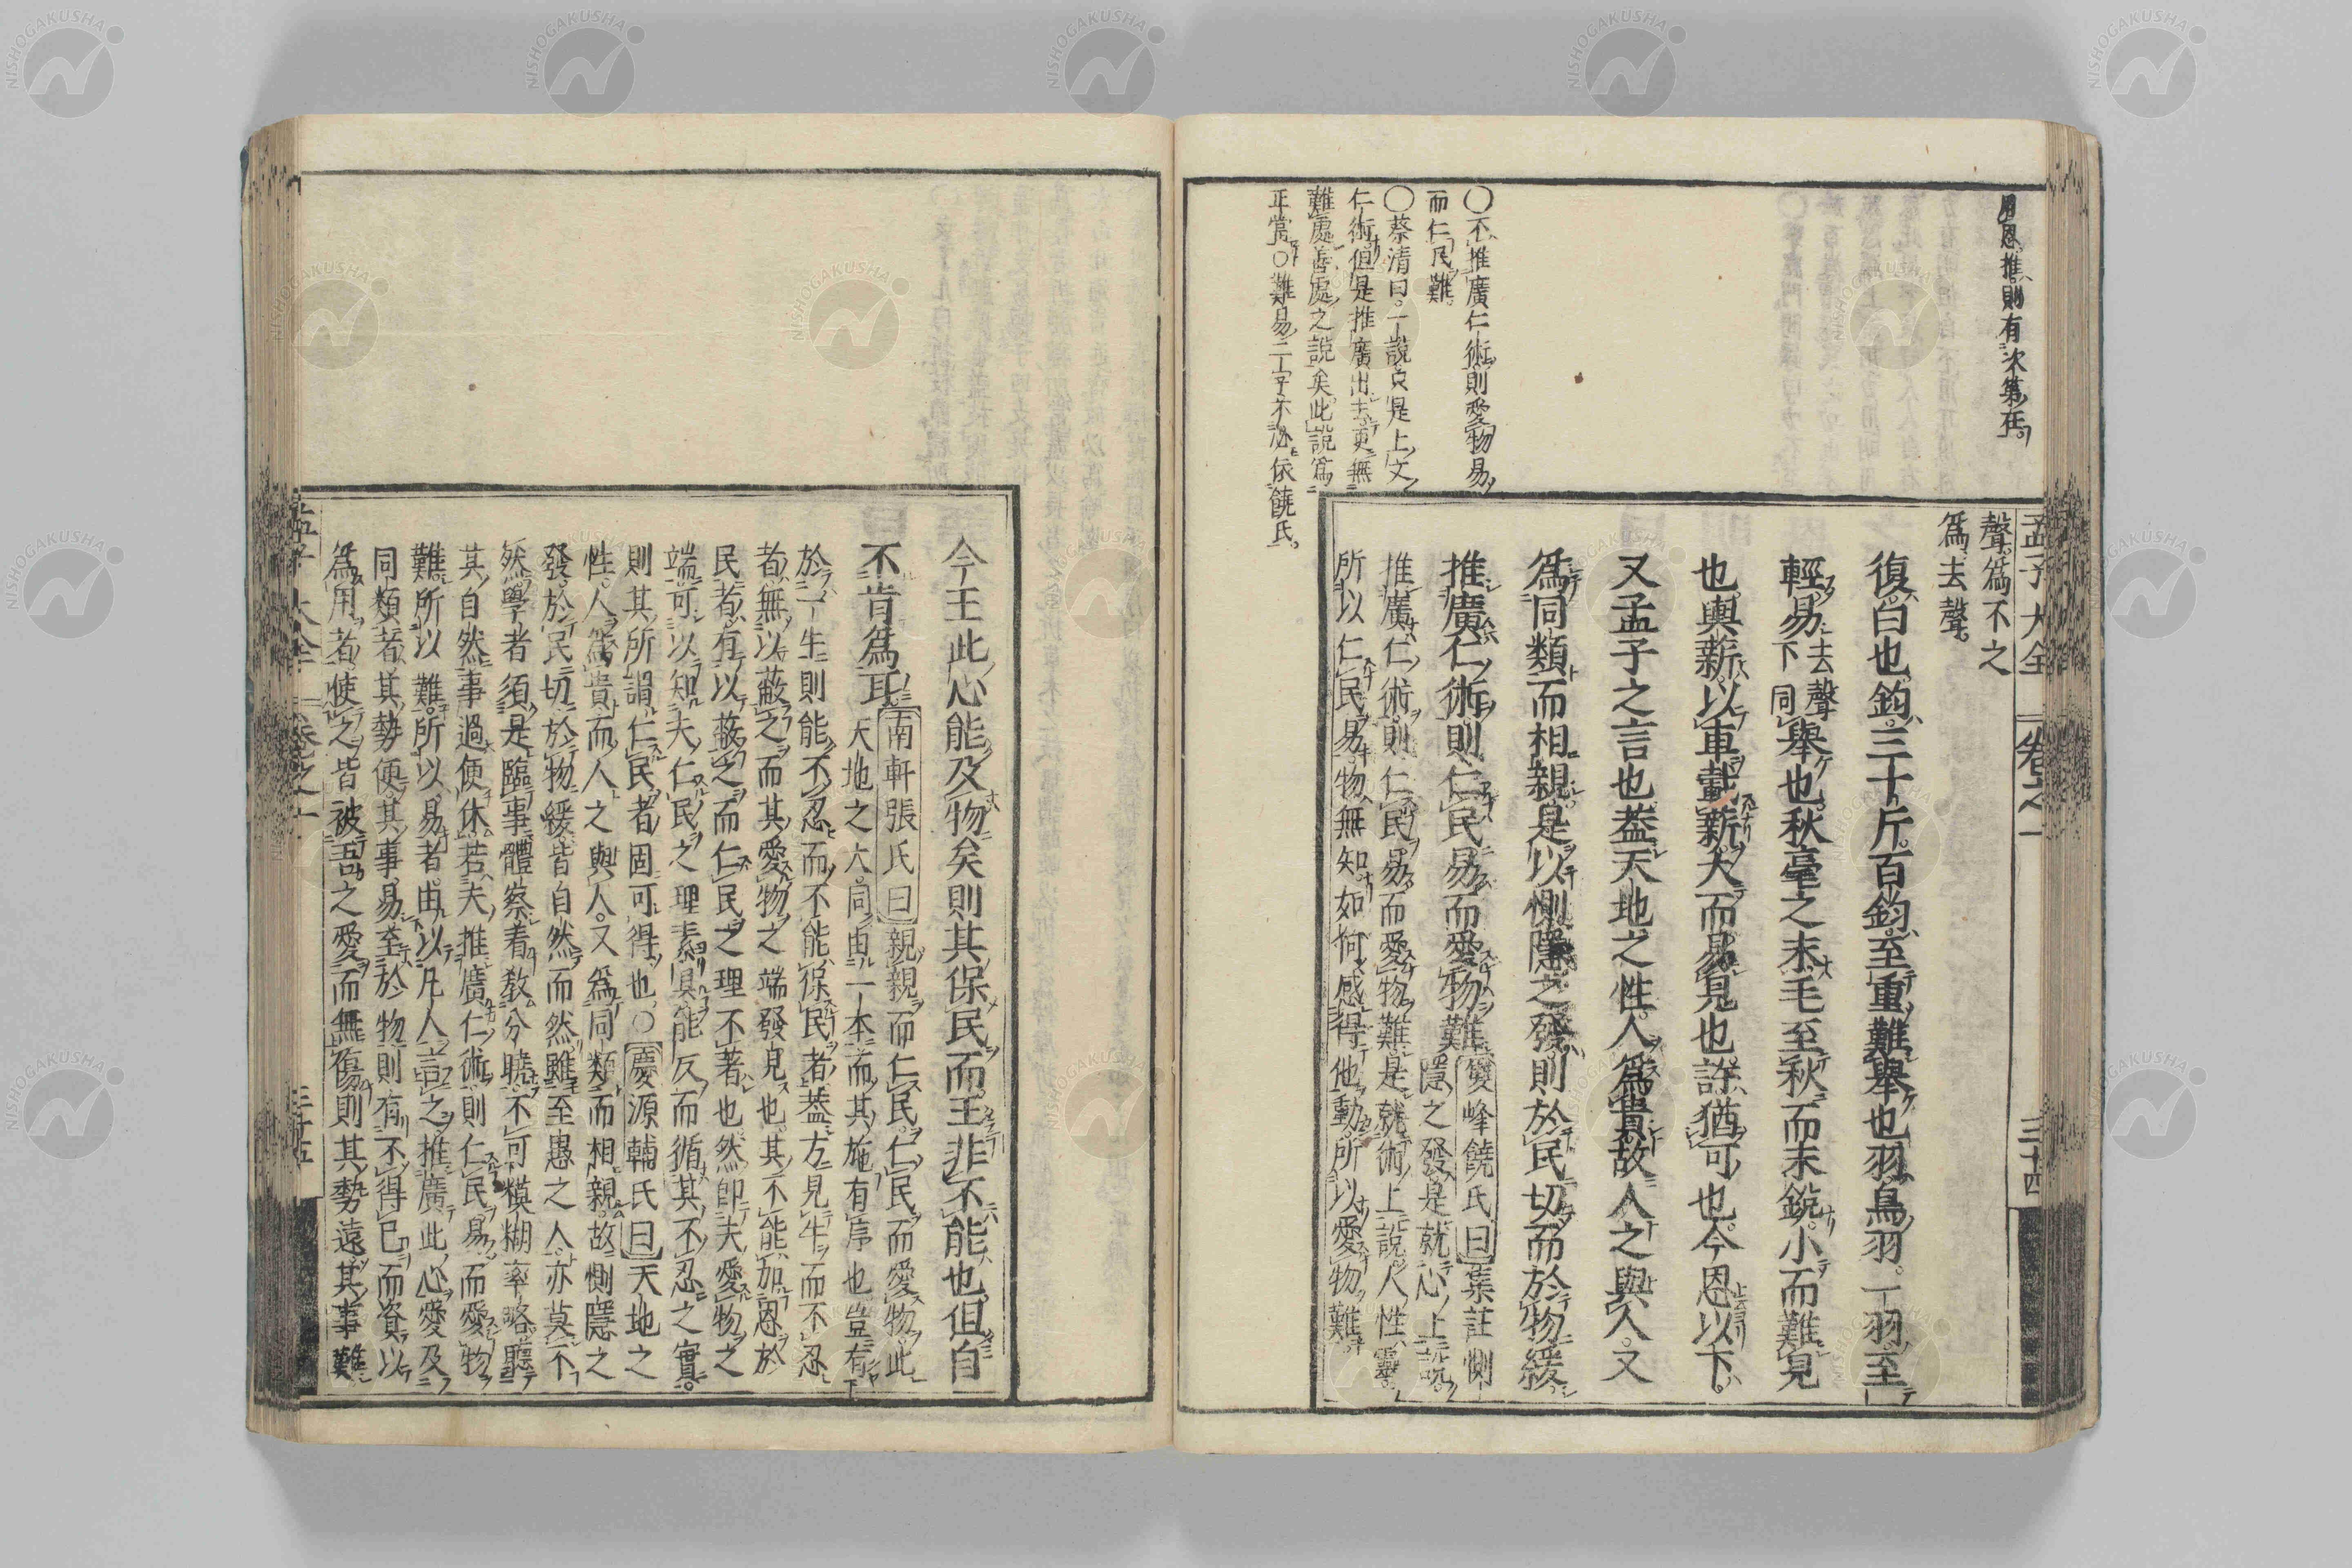 用恩推則有次第在
〇不推廣仁術則愛物易
而仁民難
〇蔡清曰一說只是上文
仁術但是推廣出去更無
難處善處之說矣此說爲
正當〇難易二字不必依饒氏
孟子大全 卷之一 三十四
聲爲不之
爲去聲
復白也鈞三十斤百鈞至重難舉也羽鳥羽一羽至
輕易去聲下同舉也秋毫之末毛至秋而末銳小而難見
也輿薪以車載薪大而易見也許猶可也今恩以下
又孟子之言也蓋天地之性人爲貴故人之與人又
爲同類而相親是以惻隱之發則於民切而於物緩
推廣仁術則仁民易而愛物難雙峰饒氏曰集註惻
隱之發是就心上說
推廣仁術則仁民易而愛物難是就術上說人性靈
所以仁民易物無知如何感得他動所以愛物難
今王此心能及物矣則其保民而王非不能也但自
不肯爲耳南軒張氏曰親親而仁民仁民而愛物此
天地之六同由一本而其施有序也豈有
於一生則能不忍而不能保民者蓋方見牛而不忍
者無以蔽之而其愛物之端發見也其不能加恩於
民者有以蔽之而仁民之理不著也然卽夫愛物之
端可以知夫仁民之理素具能反而循其不忍之實
則其所謂仁民者固可得也〇慶源輔氏曰天地之
性人爲貴而人之與人又爲同類而相親故惻隱之
發於民切於物緩皆自然而然雖至愚之人亦莫不
然學者須是臨事體察看敎分曉不可模糊率略聽
其自然事過便休若夫推廣仁術則仁民易而愛物
難所以難所以易者由以凡人言之推廣此心愛及
同類者其勢便其事易至於物則有不得已而資以
爲用者使之皆被吾之愛而無傷則其勢遠其事難
孟子大全 卷之一 三十五